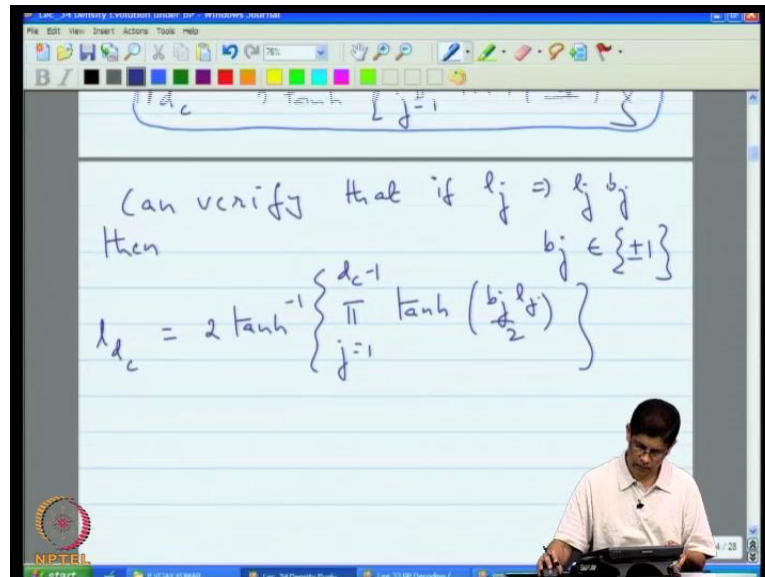 Lec_34 Density Evolution under BP - Windows Journal
File Edit View Insert Actions Tools Help
76%
B I
l d_c 2 tanh { j=1
Can verify that if l_j => l_j b_j
then b_j ∈ {±1}
l_{d_c} = 2 tanh^{-1} { π_{j=1}^{d_c-1} tanh (b_j l_j / 2) }
4/28
NPTEL
start